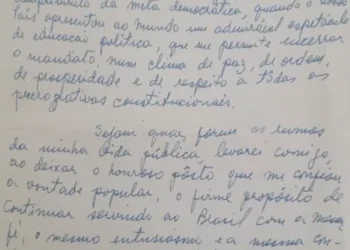 cumprimento da meta democrática, quando o nosso
País apresentou ao mundo um admirável espetáculo
de educação política, que me permite encerrar
o mandato, num clima de paz, de ordem,
de prosperidade e de respeito a tôdas as
prerrogativas constitucionais.
Sejam quais forem os rumos
da minha vida pública, levarei comigo,
ao deixar o honroso pôsto que me confiou
a vontade popular, o firme propósito de
continuar servindo ao Brasil com a mesma
fé, o mesmo entusiasmo e a mesma con-